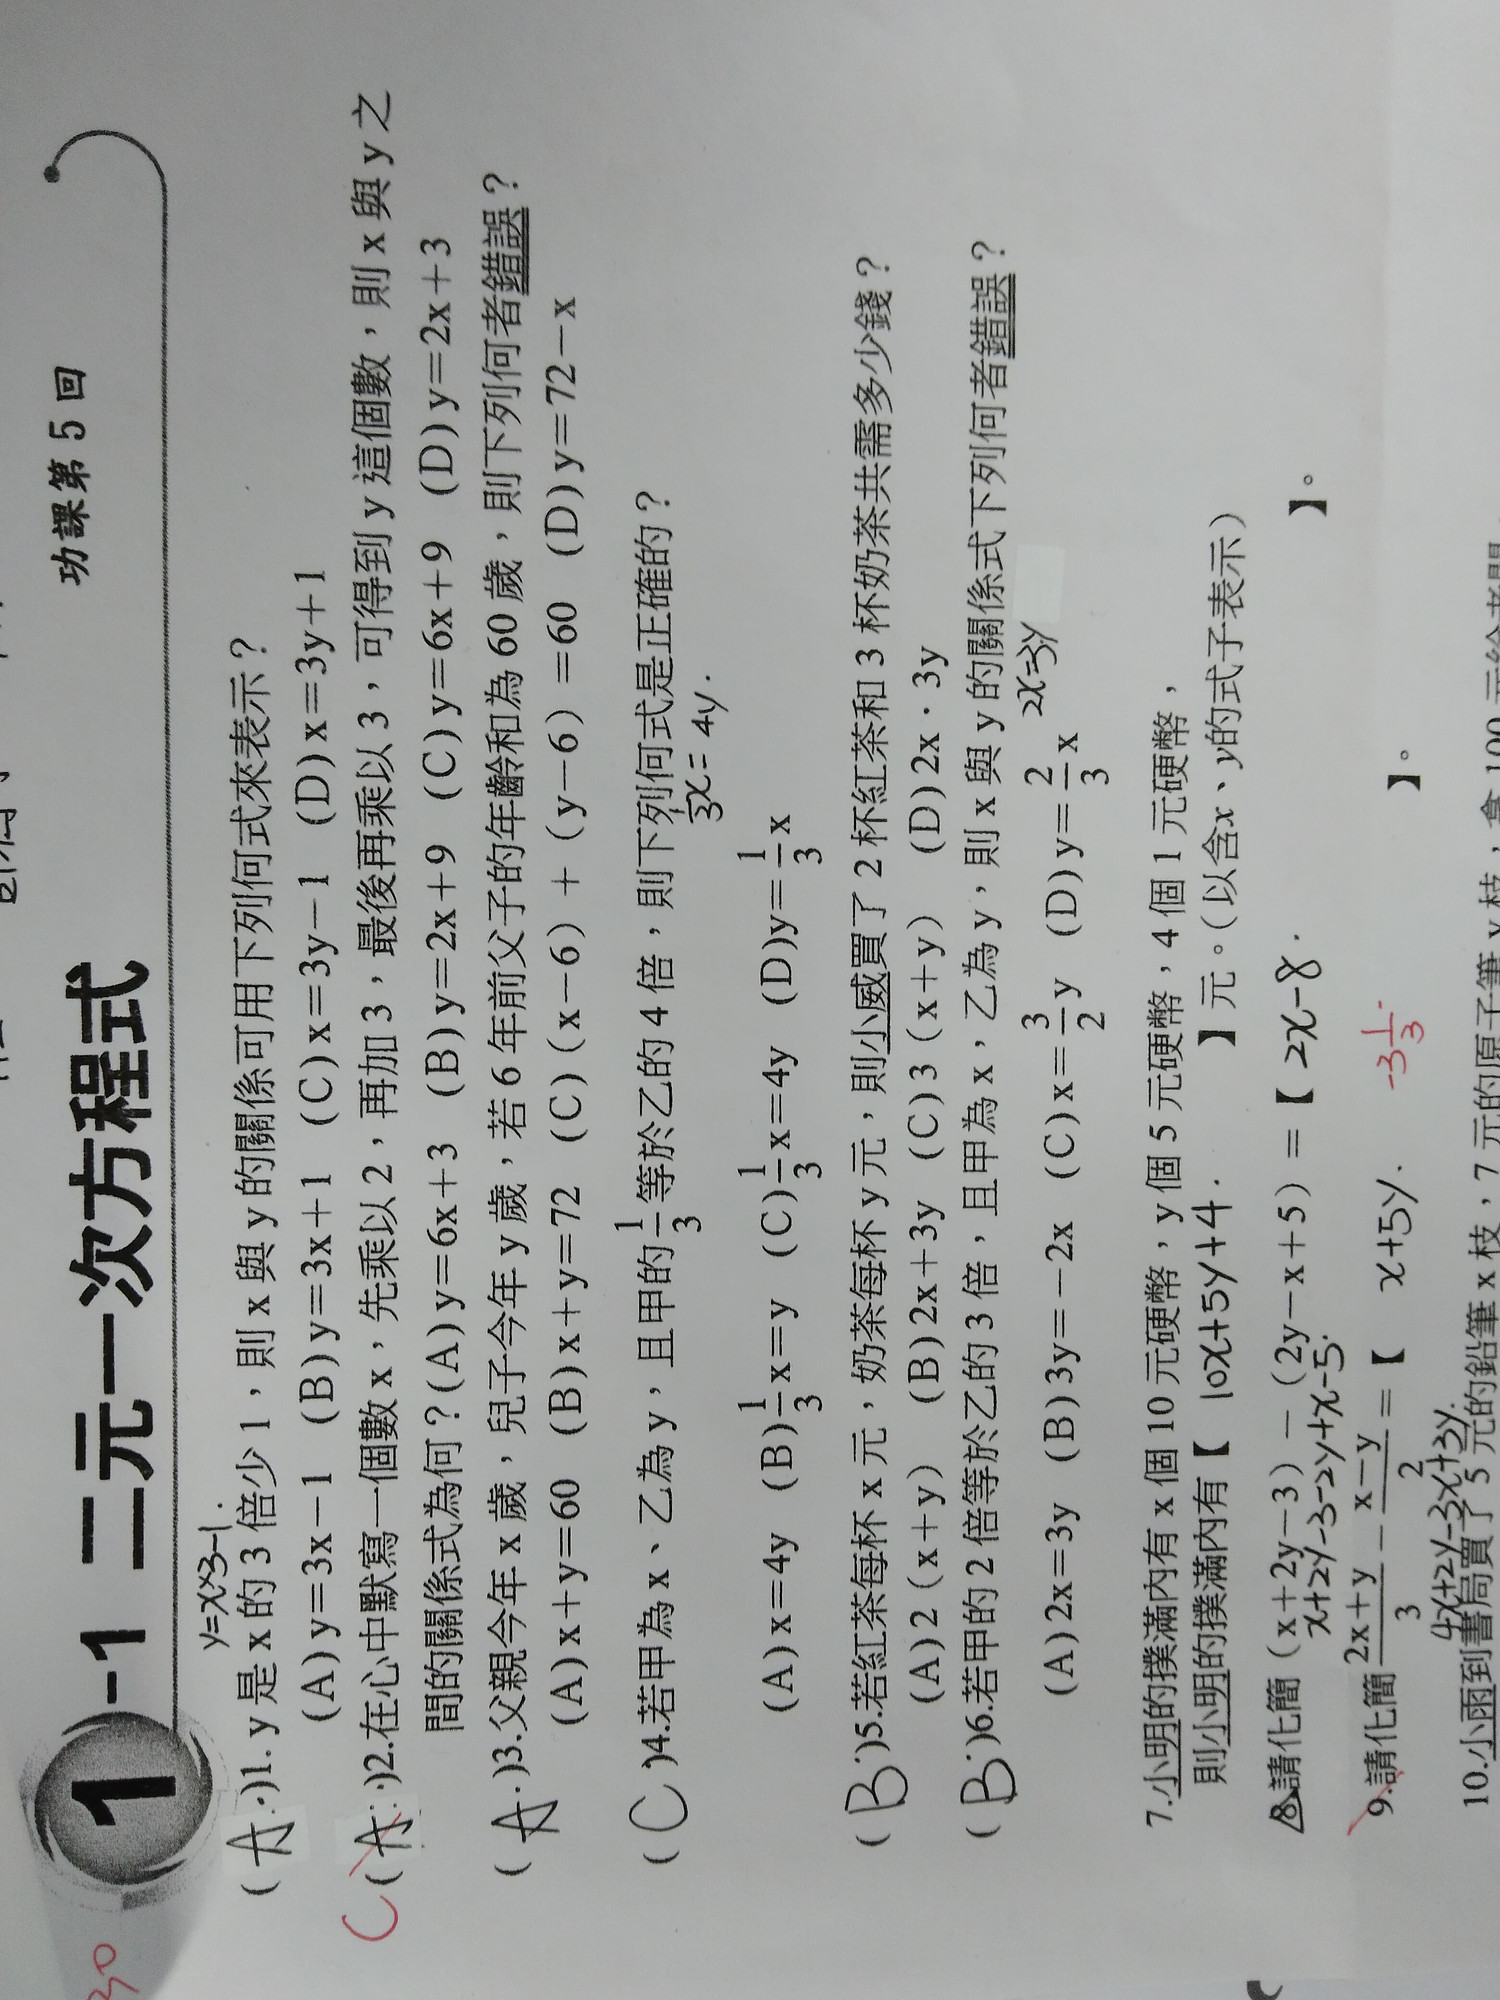 功課第 5 回
1-1 二元一次方程式
30
y=x×3-1.
( A )1. y 是 x 的 3 倍少 1,則 x 與 y 的關係可用下列何式來表示?
(A) y=3x-1 (B) y=3x+1 (C) x=3y-1 (D) x=3y+1
C ( A )2.在心中默寫一個數 x,先乘以 2,再加 3,最後再乘以 3,可得到 y 這個數,則 x 與 y 之
間的關係式為何?(A) y=6x+3 (B) y=2x+9 (C) y=6x+9 (D) y=2x+3
( A )3.父親今年 x 歲,兒子今年 y 歲,若 6 年前父子的年齡和為 60 歲,則下列何者錯誤?
(A) x+y=60 (B) x+y=72 (C) (x-6) + (y-6) =60 (D) y=72-x
( C )4.若甲為 x、乙為 y,且甲的 1/3 等於乙的 4 倍,則下列何式是正確的?
1/3 x=4y.
(A) x=4y (B) 1/3 x=y (C) 1/3 x=4y (D)y= 1/3 x
( B )5.若紅茶每杯 x 元,奶茶每杯 y 元,則小威買了 2 杯紅茶和 3 杯奶茶共需多少錢?
(A) 2 (x+y) (B) 2x+3y (C) 3 (x+y) (D) 2x·3y
( B )6.若甲的 2 倍等於乙的 3 倍,且甲為 x,乙為 y,則 x 與 y 的關係式下列何者錯誤?
2x=3y
(A) 2x=3y (B) 3y=-2x (C) x= 3/2 y (D) y= 2/3 x
7.小明的撲滿內有 x 個 10 元硬幣,y 個 5 元硬幣,4 個 1 元硬幣,
則小明的撲滿內有【 10x+5y+4. 】元。(以含x、y的式子表示)
8.請化簡 (x+2y-3) - (2y-x+5) =【 2x-8. 】。
x+2y-3-2y+x-5.
9.請化簡 2x+y/3 - x-y/2 =【 x+5y. 】。
-3 1/3.
4x+2y-3x+3y.
10.小雨到書局買了 5 元的鉛筆 x 枝,7 元的原子筆 y 枝,拿 100 元給老闆